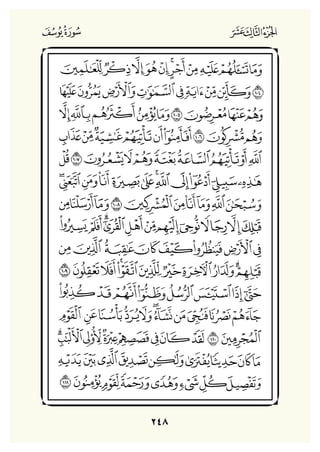 الجُزْءُ الثَّالِثَ عَشَرَ سُورَةُ يُوسُفَ
وَمَا تَسْـَٔلُهُمْ عَلَيْهِ مِنْ أَجْرٍ ۚ إِنْ هُوَ إِلَّا ذِكْرٌ لِّلْعَٰلَمِينَ
١٠٤ وَكَأَيِّن مِّنْ ءَايَةٍ فِى ٱلسَّمَٰوَٰتِ وَٱلْأَرْضِ يَمُرُّونَ عَلَيْهَا
وَهُمْ عَنْهَا مُعْرِضُونَ ١٠٥ وَمَا يُؤْمِنُ أَكْثَرُهُم بِٱللَّهِ إِلَّا
وَهُم مُّشْرِكُونَ ١٠٦ أَفَأَمِنُوٓا۟ أَن تَأْتِيَهُمْ غَٰشِيَةٌ مِّنْ عَذَابِ
ٱللَّهِ أَوْ تَأْتِيَهُمُ ٱلسَّاعَةُ بَغْتَةً وَهُمْ لَا يَشْعُرُونَ ١٠٧ قُلْ
هَٰذِهِۦ سَبِيلِىٓ أَدْعُوٓا۟ إِلَى ٱللَّهِ ۚ عَلَىٰ بَصِيرَةٍ أَنَا۠ وَمَنِ ٱتَّبَعَنِى ۖ
وَسُبْحَٰنَ ٱللَّهِ وَمَآ أَنَا۠ مِنَ ٱلْمُشْرِكِينَ ١٠٨ وَمَآ أَرْسَلْنَا مِن
قَبْلِكَ إِلَّا رِجَالًا نُّوحِىٓ إِلَيْهِم مِّنْ أَهْلِ ٱلْقُرَىٰٓ ۗ أَفَلَمْ يَسِيرُوا۟
فِى ٱلْأَرْضِ فَيَنظُرُوا۟ كَيْفَ كَانَ عَٰقِبَةُ ٱلَّذِينَ مِن
قَبْلِهِمْ ۗ وَلَدَارُ ٱلْءَاخِرَةِ خَيْرٌ لِّلَّذِينَ ٱتَّقَوْا۟ ۗ أَفَلَا تَعْقِلُونَ ١٠٩
حَتَّىٰٓ إِذَا ٱسْتَيْـَٔسَ ٱلرُّسُلُ وَظَنُّوٓا۟ أَنَّهُمْ قَدْ كُذِبُوا۟
جَآءَهُمْ نَصْرُنَا فَنُجِّىَ مَن نَّشَآءُ ۖ وَلَا يُرَدُّ بَأْسُنَا عَنِ ٱلْقَوْمِ
ٱلْمُجْرِمِينَ ١١٠ لَقَدْ كَانَ فِى قَصَصِهِمْ عِبْرَةٌ لِّأُو۟لِى ٱلْأَلْبَٰبِ ۗ
مَا كَانَ حَدِيثًا يُفْتَرَىٰ وَلَٰكِن تَصْدِيقَ ٱلَّذِى بَيْنَ يَدَيْهِ
وَتَفْصِيلَ كُلِّ شَىْءٍ وَهُدًى وَرَحْمَةً لِّقَوْمٍ يُؤْمِنُونَ ١١١
٢٤٨